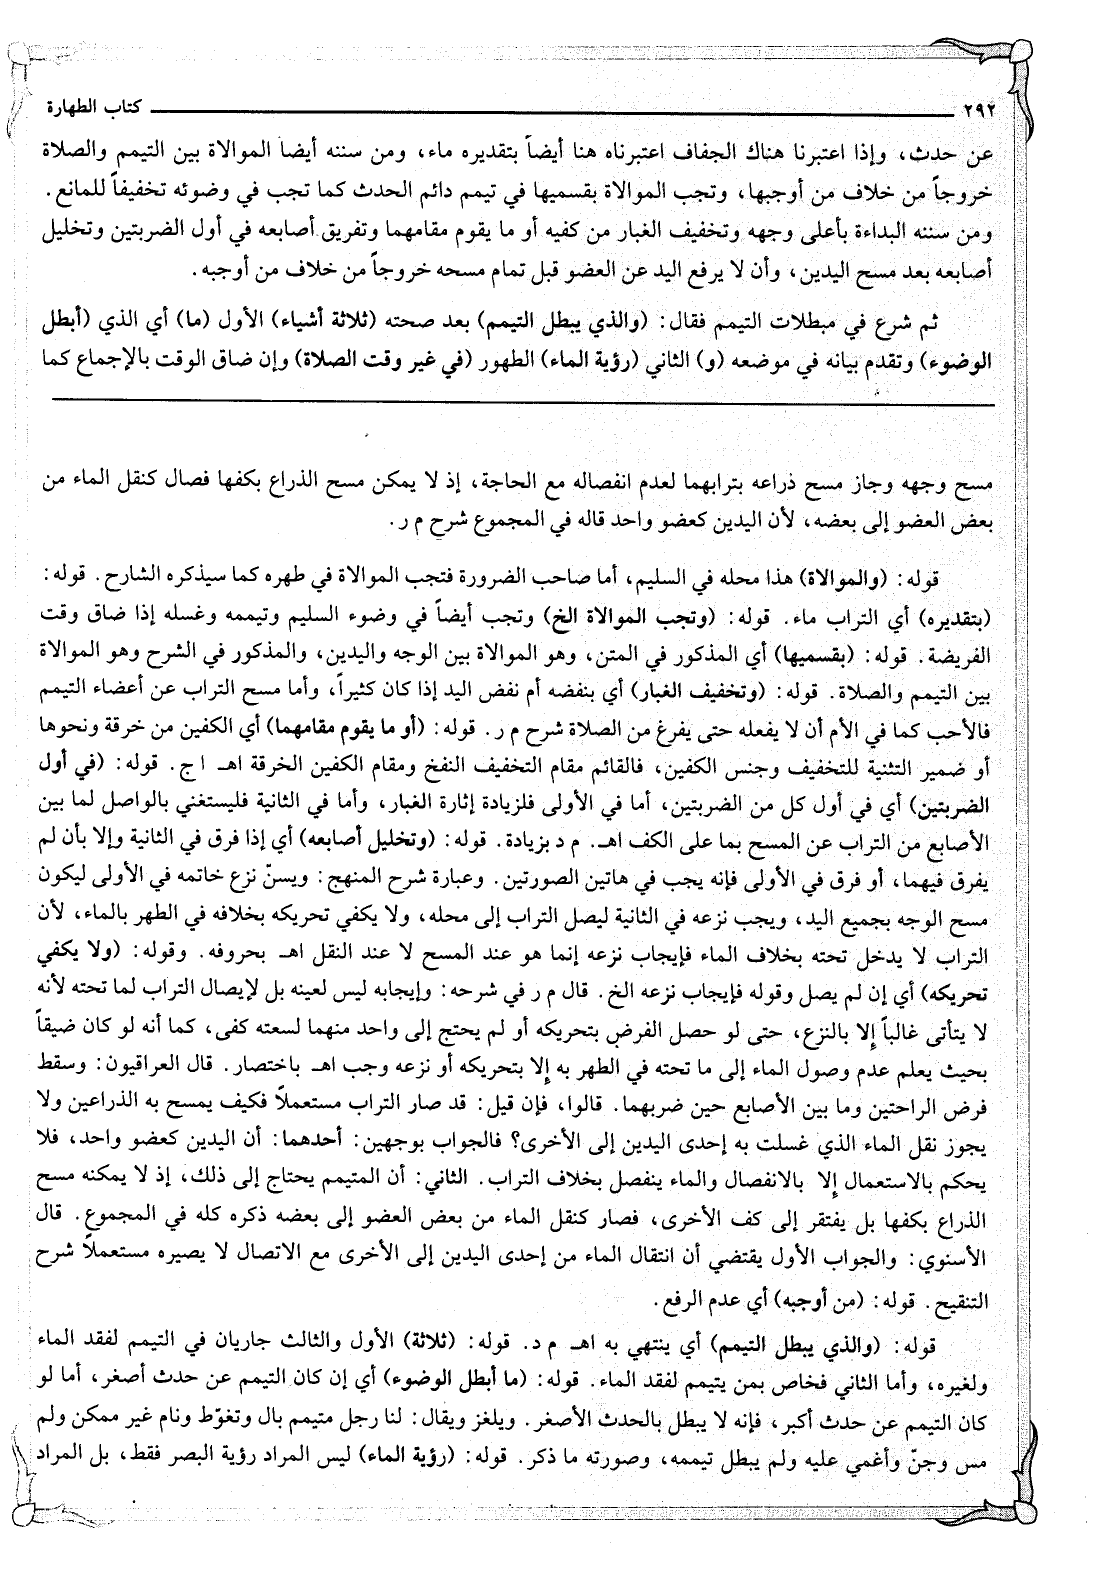 ٢٩٢ كتاب الطهارة
عن حدث، وإذا اعتبرنا هناك الجفاف اعتبرناه هنا أيضاً بتقديره ماء، ومن سننه أيضا الموالاة بين التيمم والصلاة
خروجاً من خلاف من أوجبها، وتجب الموالاة بقسميها في تيمم دائم الحدث كما تجب في وضوئه تخفيفاً للمانع.
ومن سننه البداءة بأعلى وجهه وتخفيف الغبار من كفيه أو ما يقوم مقامهما وتفريق أصابعه في أول الضربتين وتخليل
أصابعه بعد مسح اليدين، وأن لا يرفع اليد عن العضو قبل تمام مسحه خروجاً من خلاف من أوجبه.
ثم شرع في مبطلات التيمم فقال: (والذي يبطل التيمم) بعد صحته (ثلاثة أشياء) الأول (ما) أي الذي (أبطل
الوضوء) وتقدم بيانه في موضعه (و) الثاني (رؤية الماء) الطهور (في غير وقت الصلاة) وإن ضاق الوقت بالإجماع كما
مسح وجهه وجاز مسح ذراعه بترابهما لعدم انفصاله مع الحاجة، إذ لا يمكن مسح الذراع بكفها فصال كنقل الماء من
بعض العضو إلى بعضه، لأن اليدين كعضو واحد قاله في المجموع شرح م ر.
قوله: (والموالاة) هذا محله في السليم، أما صاحب الضرورة فتجب الموالاة في طهره كما سيذكره الشارح. قوله:
(بتقديره) أي التراب ماء. قوله: (وتجب الموالاة الخ) وتجب أيضاً في وضوء السليم وتيممه وغسله إذا ضاق وقت
الفريضة. قوله: (بقسميها) أي المذكور في المتن، وهو الموالاة بين الوجه واليدين، والمذكور في الشرح وهو الموالاة
بين التيمم والصلاة. قوله: (وتخفيف الغبار) أي بنفضه أم نفض اليد إذا كان كثيراً، وأما مسح التراب عن أعضاء التيمم
فالأحب كما في الأم أن لا يفعله حتى يفرغ من الصلاة شرح م ر. قوله: (أو ما يقوم مقامهما) أي الكفين من خرقة ونحوها
أو ضمير التثنية للتخفيف وجنس الكفين، فالقائم مقام التخفيف النفخ ومقام الكفين الخرقة اهـ ا ج. قوله: (في أول
الضربتين) أي في أول كل من الضربتين، أما في الأولى فلزيادة إثارة الغبار، وأما في الثانية فليستغني بالواصل لما بين
الأصابع من التراب عن المسح بما على الكف اهـ. م د بزيادة. قوله: (وتخليل أصابعه) أي إذا فرق في الثانية وإلا بأن لم
يفرق فيهما، أو فرق في الأولى فإنه يجب في هاتين الصورتين. وعبارة شرح المنهج: ويسنّ نزع خاتمه في الأولى ليكون
مسح الوجه بجميع اليد، ويجب نزعه في الثانية ليصل التراب إلى محله، ولا يكفي تحريكه بخلافه في الطهر بالماء، لأن
التراب لا يدخل تحته بخلاف الماء فإيجاب نزعه إنما هو عند المسح لا عند النقل اهـ بحروفه. وقوله: (ولا يكفي
تحريكه) أي إن لم يصل وقوله فإيجاب نزعه الخ. قال م ر في شرحه: وإيجابه ليس لعينه بل لإيصال التراب لما تحته لأنه
لا يتأتى غالباً إلا بالنزع، حتى لو حصل الفرض بتحريكه أو لم يحتج إلى واحد منهما لسعته كفى، كما أنه لو كان ضيقاً
بحيث يعلم عدم وصول الماء إلى ما تحته في الطهر به إلا بتحريكه أو نزعه وجب اهـ باختصار. قال العراقيون: وسقط
فرض الراحتين وما بين الأصابع حين ضربهما. قالوا، فإن قيل: قد صار التراب مستعملاً فكيف يمسح به الذراعين ولا
يجوز نقل الماء الذي غسلت به إحدى اليدين إلى الأخرى؟ فالجواب بوجهين: أحدهما: أن اليدين كعضو واحد، فلا
يحكم بالاستعمال إلا بالانفصال والماء ينفصل بخلاف التراب. الثاني: أن المتيمم يحتاج إلى ذلك، إذ لا يمكنه مسح
الذراع بكفها بل يفتقر إلى كف الأخرى، فصار كنقل الماء من بعض العضو إلى بعضه ذكره كله في المجموع. قال
الأسنوي: والجواب الأول يقتضي أن انتقال الماء من إحدى اليدين إلى الأخرى مع الاتصال لا يصيره مستعملاً شرح
التنقيح. قوله: (من أوجبه) أي عدم الرفع.
قوله: (والذي يبطل التيمم) أي ينتهي به اهـ م د. قوله: (ثلاثة) الأول والثالث جاريان في التيمم لفقد الماء
ولغيره، وأما الثاني فخاص بمن يتيمم لفقد الماء. قوله: (ما أبطل الوضوء) أي إن كان التيمم عن حدث أصغر، أما لو
كان التيمم عن حدث أكبر، فإنه لا يبطل بالحدث الأصغر. ويلغز ويقال: لنا رجل متيمم بال وتغوّط ونام غير ممكن ولم
مس وجنّ وأغمي عليه ولم يبطل تيممه، وصورته ما ذكر. قوله: (رؤية الماء) ليس المراد رؤية البصر فقط، بل المراد